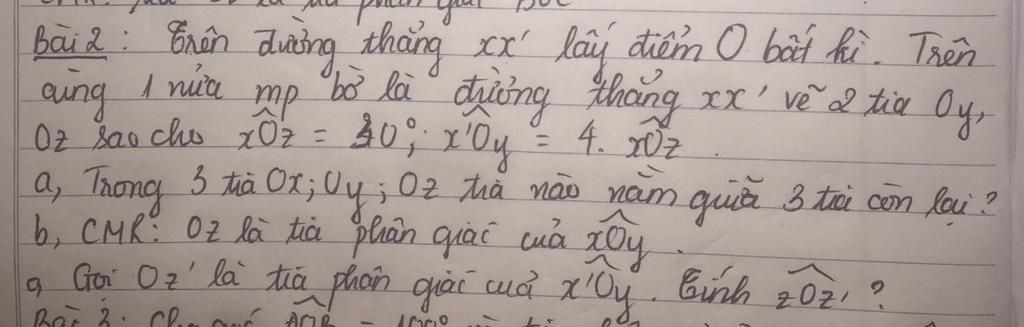 phân giác
Bài 2 : Trên đường thẳng xx' lấy điểm O bất kì. Trên
cùng 1 nửa mp bờ là đường thẳng xx' vẽ 2 tia Oy,
Oz sao cho xOz = 30°; x'Oy = 4. xOz .
a, Trong 3 tia Ox; Oy; Oz tia nào nằm giữa 3 tia còn lại?
b, CMR: Oz là tia phân giác của xOy .
c, Gọi Oz' là tia phân giác của x'Oy. Tính zOz' ?
Bài 3: Cho góc AOB = 100°